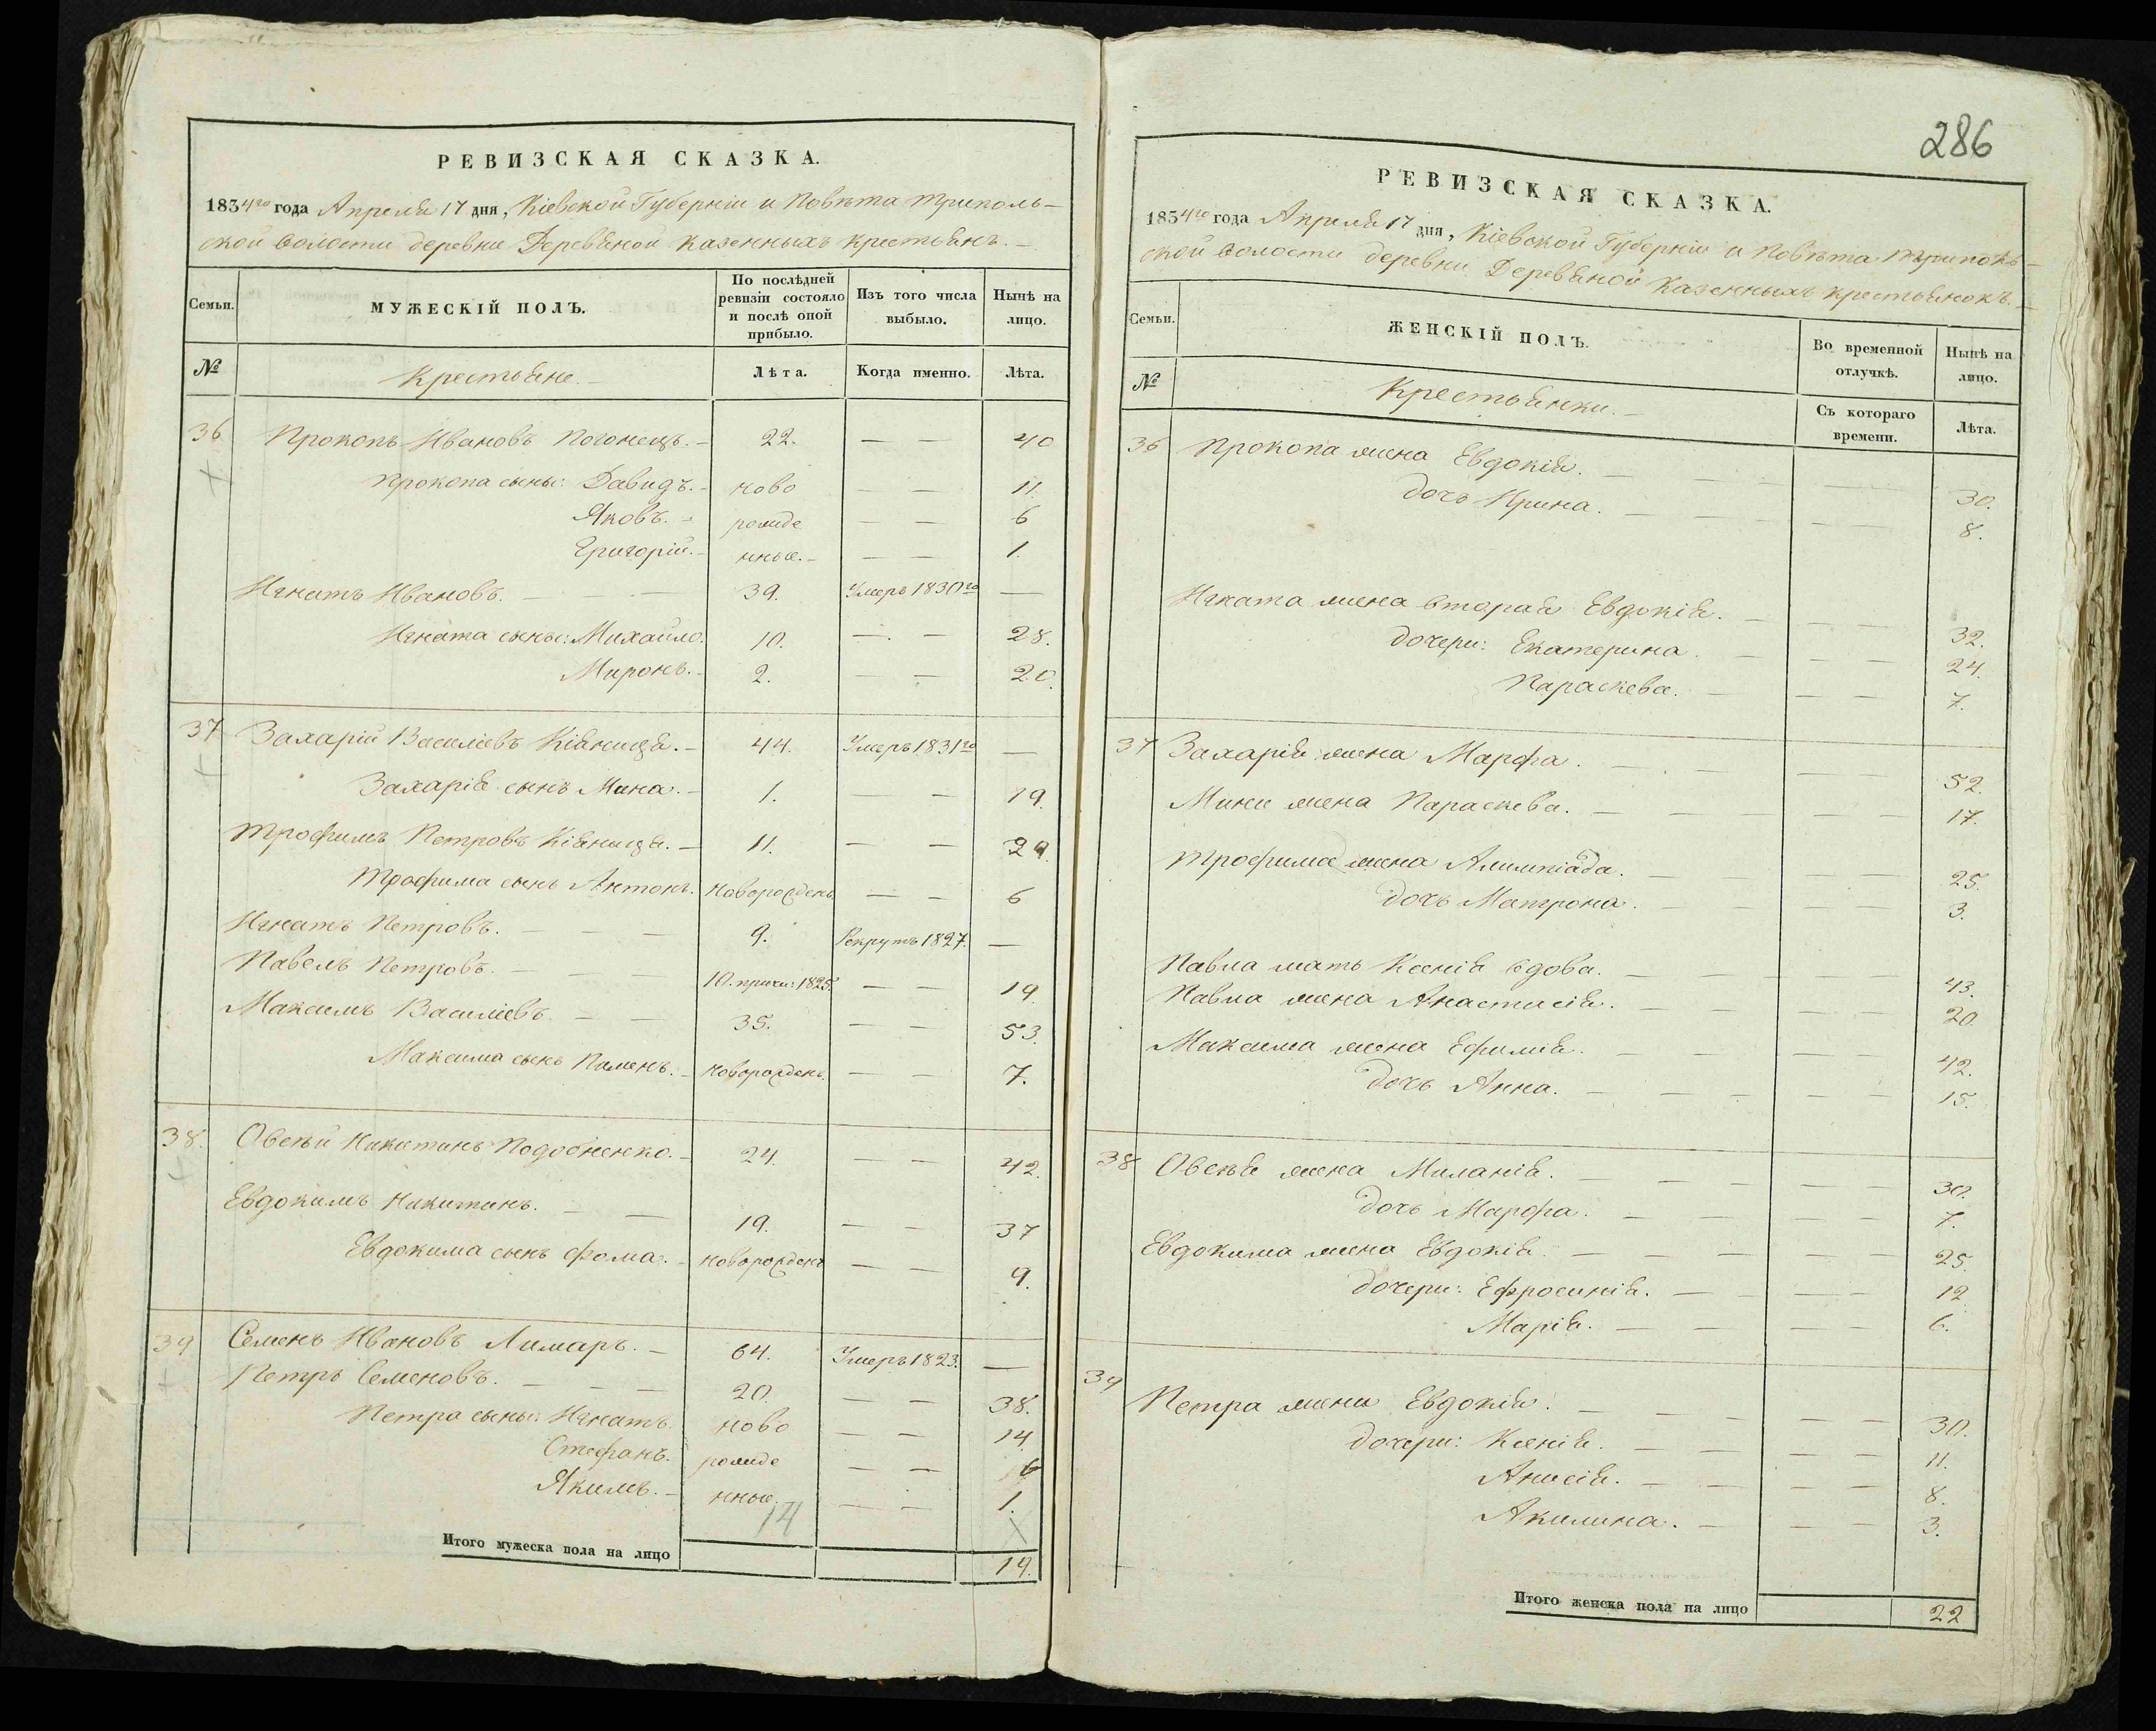 286
РЕВИЗСКАЯ СКАЗКА.
1834го года Апреля 17 дня, Кіевской Губерніи и Повѣта Триполь-
ской волости деревни Деревяной казенныхъ крестьянъ.
Семьи. МУЖЕСКІЙ ПОЛЪ. По послѣдней ревизіи состояло и послѣ оной прибыло. Изъ того числа выбыло. Нынѣ на лицо.
№ Крестьяне. Лѣта. Когда именно. Лѣта.
36 Прокопъ Ивановъ Погонецъ. 22. — — 40
Прокопа сыны: Давидъ. ново — — 11.
Яковъ. рожде — — 6
Григорій. нные. — — 1.
Игнатъ Ивановъ. — — 39. Умеръ 1830го —
Игната сыны: Михайло. 10. — — 28.
Миронъ. 2. — — 20.
37 Захарій Василіевъ Кіяница. 44. Умеръ 1831го —
Захарія сынъ Мина. 1. — — 19.
Трофимъ Петровъ Кіяница. 11. — — 29.
Трофима сынъ Антонъ. новорожденъ — — 6
Игнатъ Петровъ. — — 9. Рекрутъ 1827. —
Павелъ Петровъ. — — 10. причи: 1825. — — 19.
Максимъ Василіевъ. — — 35. — — 53.
Максима сынъ Пименъ. новорожденъ. — — 7.
38. Овсѣй Никитинъ Подобненко. 24. — — 42.
Евдокимъ Никитинъ. — — 19. — — 37
Евдокима сынъ Фома. новорожденъ — — 9.
39 Семенъ Ивановъ Лимаръ. 64. Умеръ 1823. —
Петръ Семеновъ. — — — 20. — — 38.
Петра сыны: Игнатъ. ново — — 14.
Стефанъ. рожде — — 6
Якимъ. нные. — — 1.
14
Итого мужеска пола на лицо 19.
РЕВИЗСКАЯ СКАЗКА.
1834го года Апреля 17 дня, Кіевской Губерніи и Повѣта Триполь-
ской волости деревни Деревяной казенныхъ крестьянокъ.
Семьи. ЖЕНСКІЙ ПОЛЪ. Во временной отлучкѣ. Нынѣ на лицо.
№ Крестьянки. Съ котораго времени. Лѣта.
36 Прокопа жена Евдокія. — — — 30.
дочь Ирина. — — — 8.
Игната жена вторая Евдокія. — — — 32.
дочери: Екатерина. — — — 24.
Параскева. — — — 7.
37 Захарія жена Марфа. — — — 52.
Мины жена Параскева. — — — 17.
Трофима жена Алимпіада. — — — 25.
дочь Матрона. — — — 3.
Павла мать Ксенія вдова. — — — 43.
Павла жена Анастасія. — — — 20.
Максима жена Ефимія. — — — 42.
дочь Анна. — — — 15.
38 Овсѣя жена Миланія. — — — 30.
дочь Марфа. — — — 7.
Евдокима жена Евдокія. — — — 25.
дочери: Ефросинія. — — — 12
Марія. — — — 6.
39 Петра жена Евдокія. — — — 30.
дочери: Ксенія. — — — 11.
Анисія. — — — 8.
Акилина. — — — 3.
Итого женска пола на лицо 22